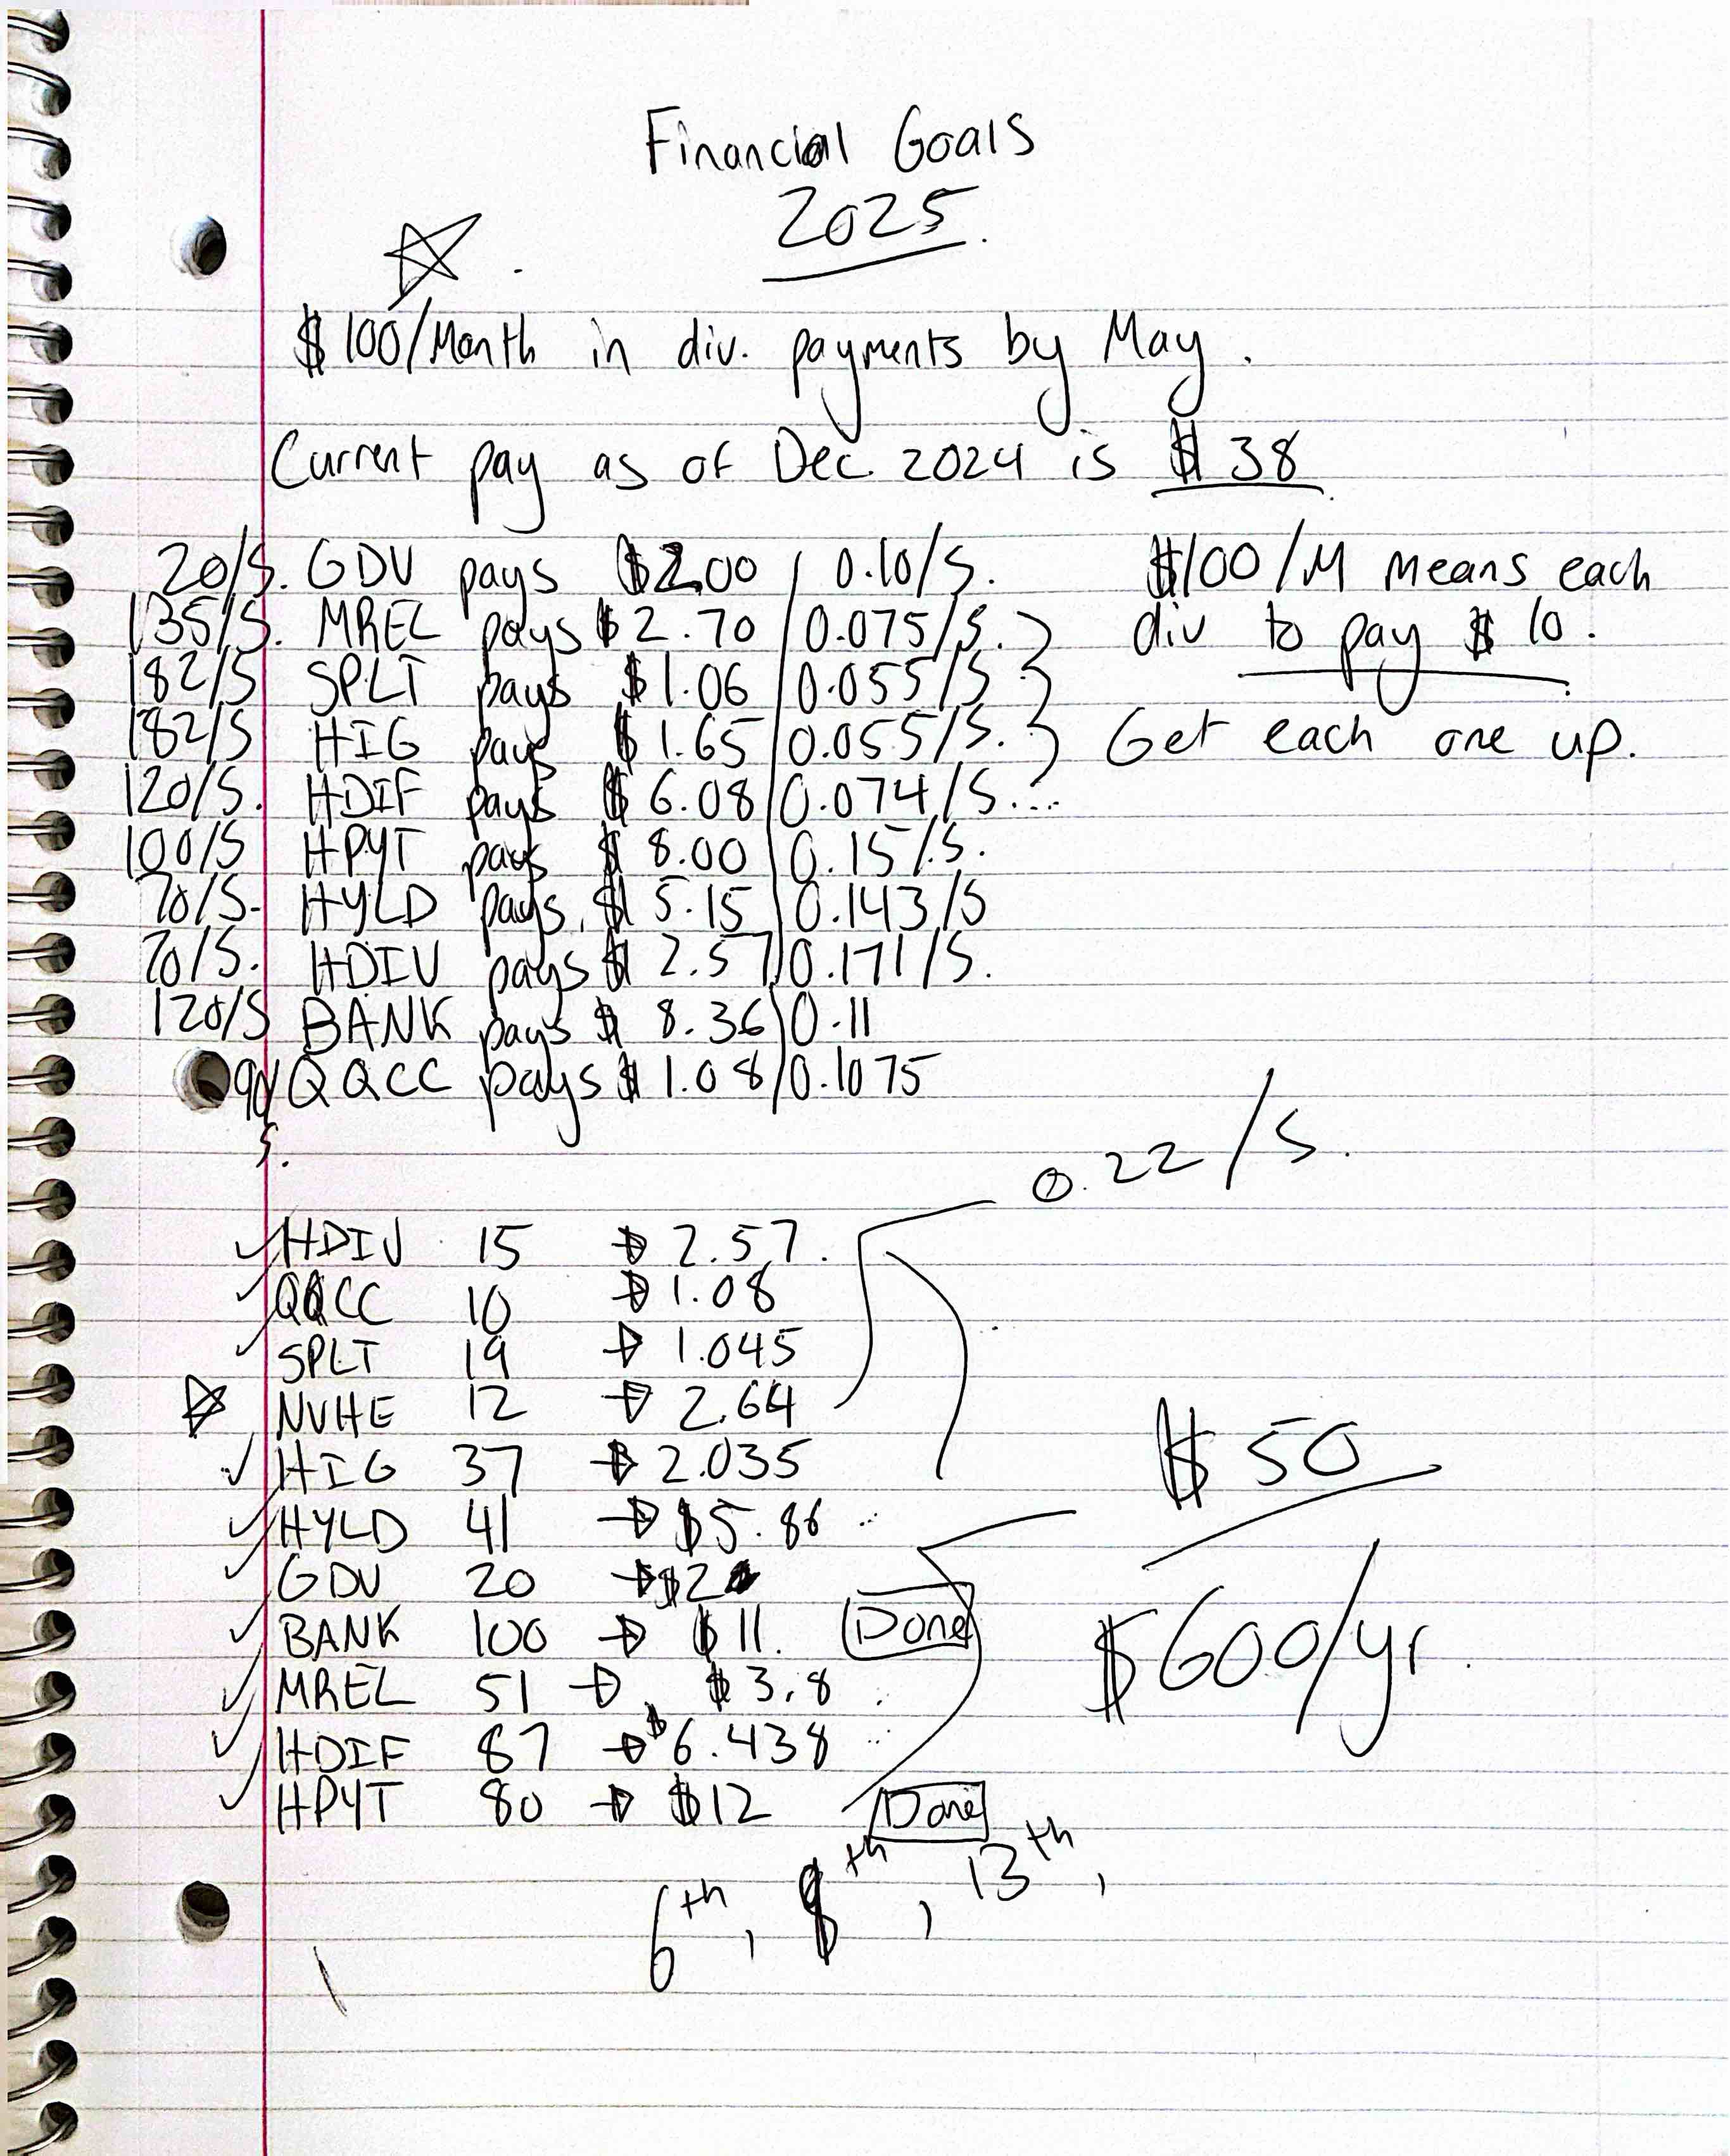 Financial Goals
2025.
$100/Month in div. payments by May.
Current pay as of Dec. 2024 is $38
20/S. GDV pays $2.00 / 0.10/S.
135/S. MREL pays $2.70 / 0.075/S.
182/S SPLT pays $1.06 / 0.055/S
182/S HIG pays $1.65 / 0.055/S.
120/S. HDIF pays $6.08 / 0.074/S...
100/S HPYT pays $8.00 / 0.15/S.
70/S. HYLD pays $5.15 / 0.143/S
70/S. HDIV pays $2.57 / 0.171/S.
120/S BANK pays $8.36 / 0.11
90/S. QQCC pays $1.08 / 0.1075
$100/M means each
div to pay $10.
Get each one up.
0.22/S.
✓ HDIV 15 → 2.57.
✓ QQCC 10 → 1.08
✓ SPLT 19 → 1.045
☆ NVHE 12 → 2.64
✓ HIG 37 → 2.035
✓ HYLD 41 → $5.86
✓ GDV 20 → $2
✓ BANK 100 → $11. Done
✓ MREL 51 → $3.8
✓ HDIF 87 → $6.438
✓ HPYT 80 → $12 Done
$50
$600/yr.
6th, 8th, 13th,